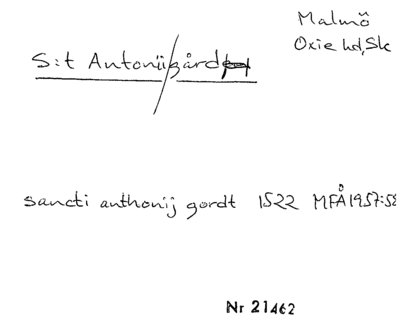 Malmö
Oxie hd, Sk
S:t Antonii/gård
sancti anthonij gordt 1522 MFÅ 1957:58
Nr 21462